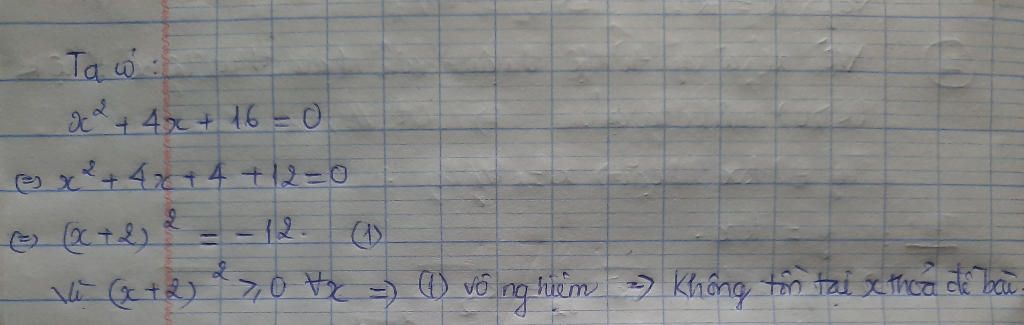 Ta có:
x² + 4x + 16 = 0
⇔ x² + 4x + 4 + 12 = 0
⇔ (x+2)² = -12. (1)
Vì (x+2)² ≥ 0 ∀x ⇒ (1) vô nghiệm ⇒ Không tồn tại x thoả đề bài.